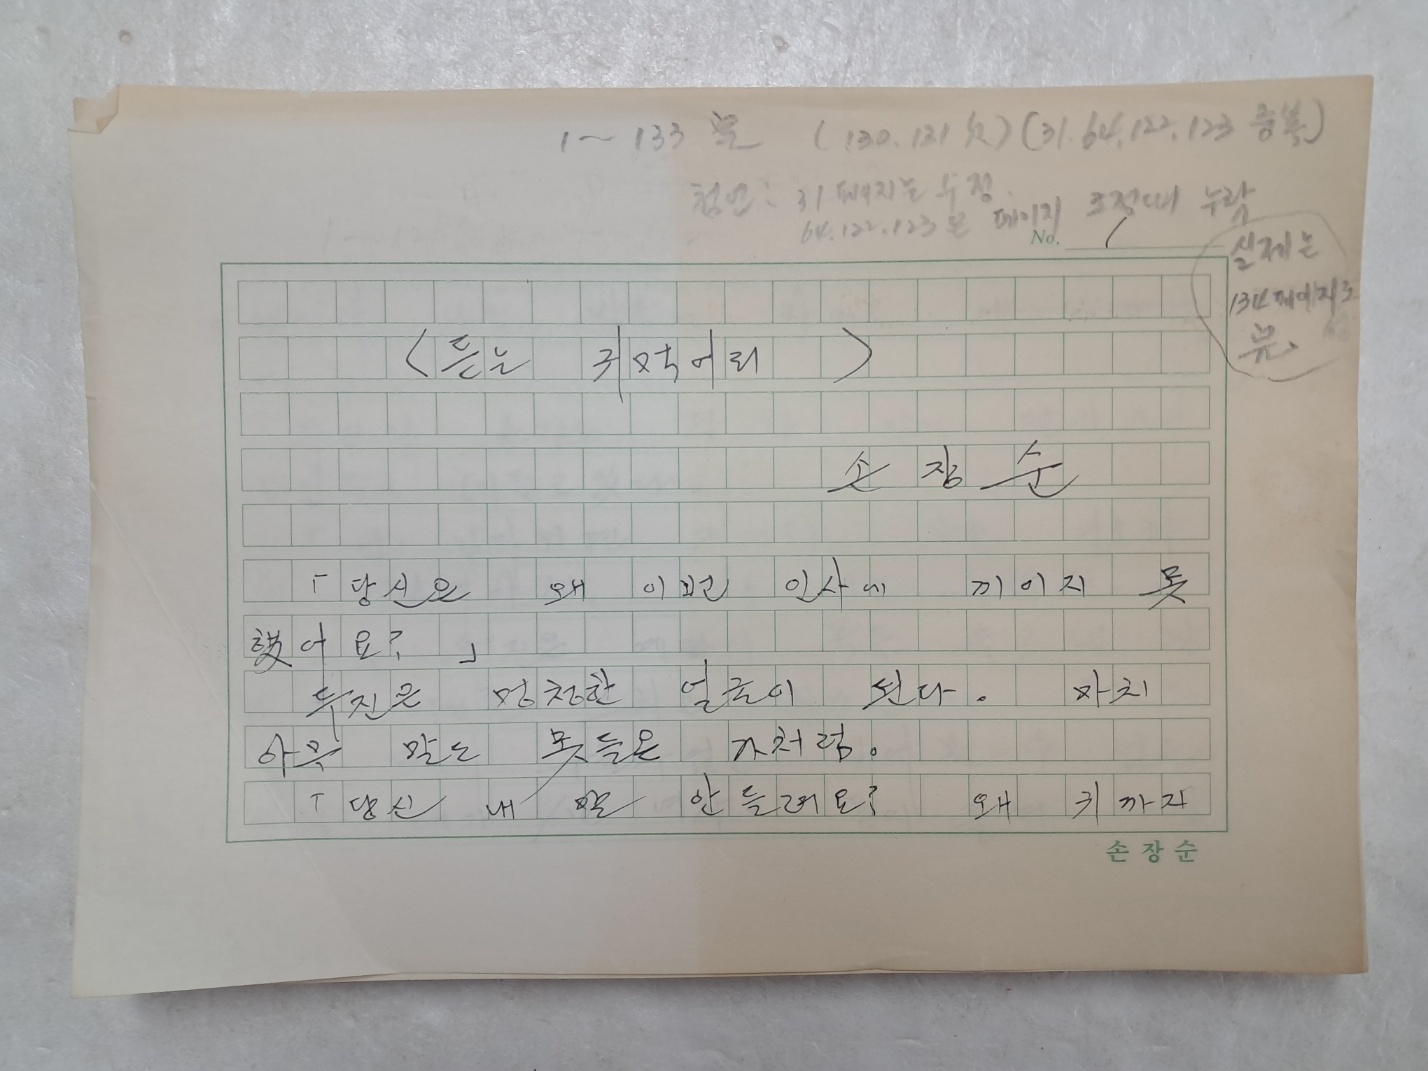 1~133 完 (130.131 欠)(31.64.122.123 중복)
첨언: 31 페이지는 수정.
64.122.123은 페이지 조정때 누락
No. 1
실제는
134페이지로
完.
〈듣는 귀먹어리〉
손장순
「당신은 왜 이번 인사에 끼이지 못
했어요? 」
두진은 멍청한 얼굴이 된다. 마치
아무 말도 못들은 자처럼.
「당신 내 말 안들려요? 왜 키까지
손장순